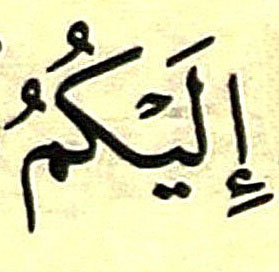 إِلَيْكُمُ